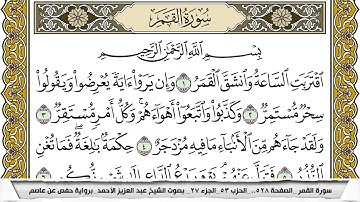 سُورَةُ القَمَرِ
بِسْمِ اللَّهِ الرَّحْمَٰنِ الرَّحِيمِ
اقْتَرَبَتِ السَّاعَةُ وَانشَقَّ الْقَمَرُ ١ وَإِن يَرَوْا ءَايَةً يُعْرِضُوا وَيَقُولُوا
سِحْرٌ مُّسْتَمِرٌّ ٢ وَكَذَّبُوا وَاتَّبَعُوا أَهْوَاءَهُمْ وَكُلُّ أَمْرٍ مُّسْتَقِرٌّ ٣
وَلَقَدْ جَاءَهُم مِّنَ الْأَنبَاءِ مَا فِيهِ مُزْدَجَرٌ ٤ حِكْمَةٌ بَالِغَةٌ فَمَا تُغْنِ
النُّذُرُ ٥ فَتَوَلَّ عَنْهُمْ يَوْمَ يَدْعُ الدَّاعِ إِلَىٰ شَيْءٍ نُّكُرٍ
سورة القمر _ الصفحة ٥٢٨ _ الحزب ٥٣ _ الجزء ٢٧ _ بصوت الشيخ عبد العزيز الأحمد _ برواية حفص عن عاصم